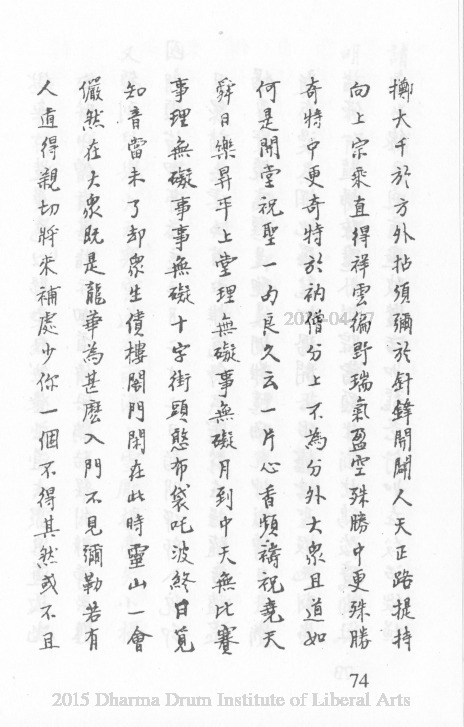 擲大千於方外拈須彌於針鋒開闢人天正路提持
向上宗乘直得祥雲徧野瑞氣盈空殊勝中更殊勝
奇特中更奇特於衲僧分上不為分外大眾且道如
何是開堂祝聖一句良久云一片心香頻禱祝堯天
舜日樂昇平上堂理無礙事無礙月到中天無比賽
事理無礙事事無礙十字街頭憨布袋吒波終日覓
知音當未了却眾生債樓閣門閑在此時靈山一會
儼然在大眾既是龍華為甚麽入門不見彌勒若有
人道得親切將來補處少你一個不得其然或不且
74
2015 Dharma Drum Institute of Liberal Arts